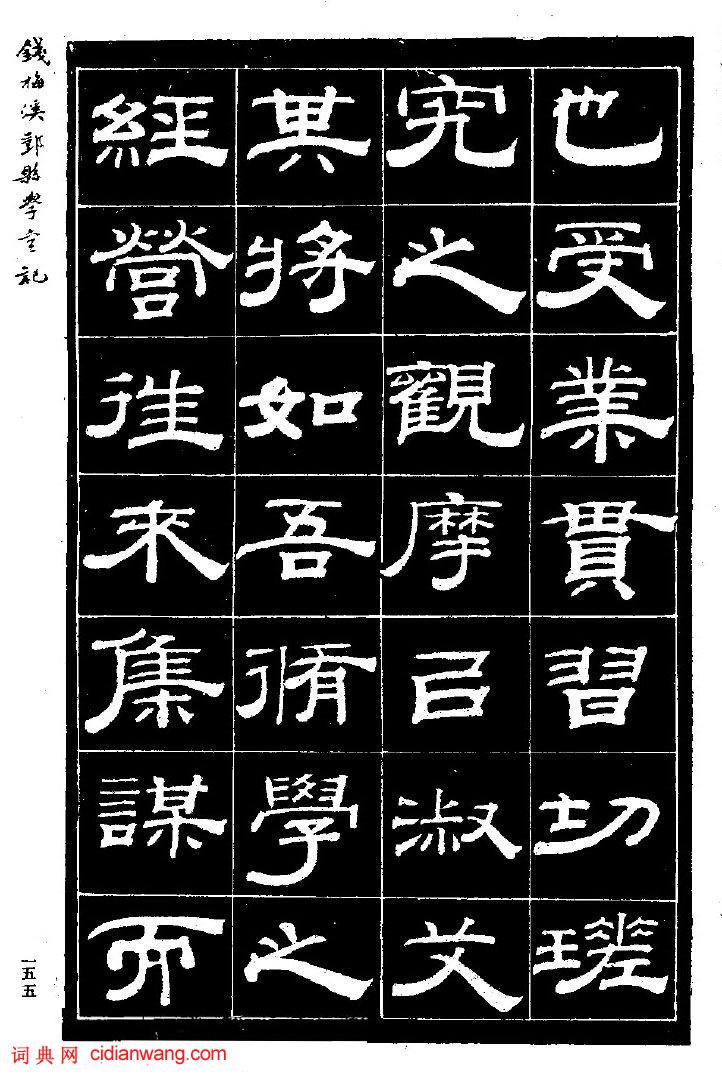 也受業貫習切瑳
究之觀摩㠯淑艾
其將如吾脩學之
經營往來集謀而
錢梅溪縣學記
一五五
词典网 cidianwang.com